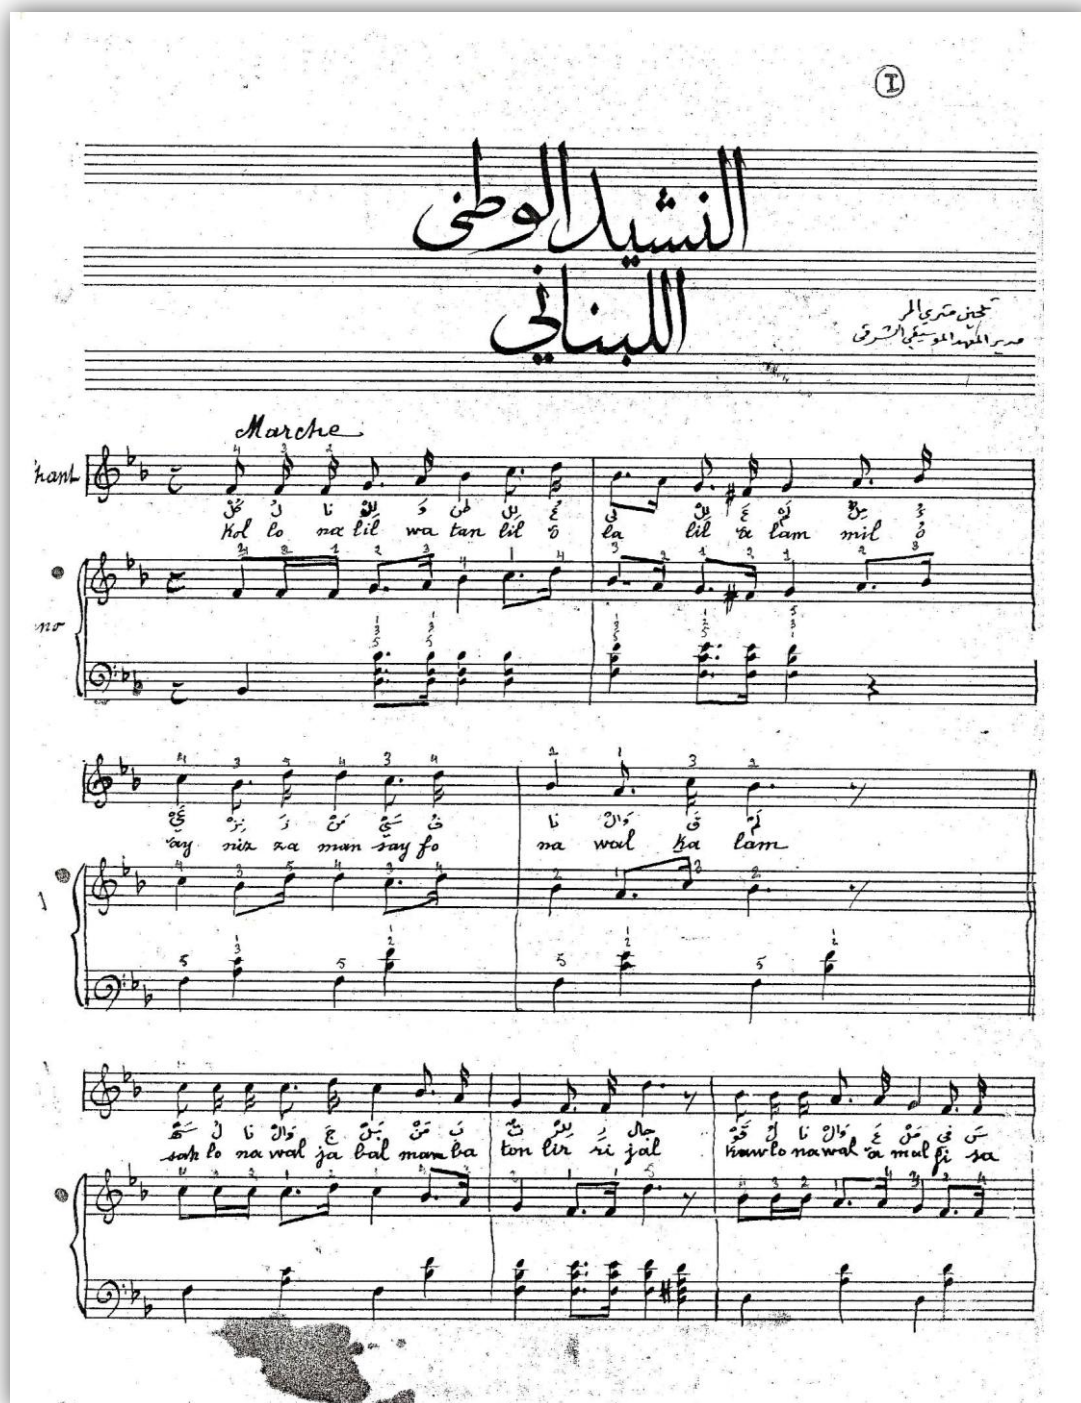 I
النشيد الوطني
اللبناني
تلحين متري المر
مدير المعهد الموسيقي الشرقي
Marche
hant
كُلْ لُ نَا لِلْ وَ طَنْ لِلْ عُ لَى لِلْ عَ لَمْ مِلْ
Kol lo na lil wa tan lil ö la lil a lam mil ö
no
ay niz za man say fo na wal ka lam
سَهْ لُ نَا وَالْ جَ بَلْ مَنْ بَ تٌ لِلرْ رِ جال قَوْ لُ نَا وَالْ عَ مَلْ فِي سَ
sah lo na wal ja bal man ba ton lir ri jal kaw lo na wal a mal fi sa